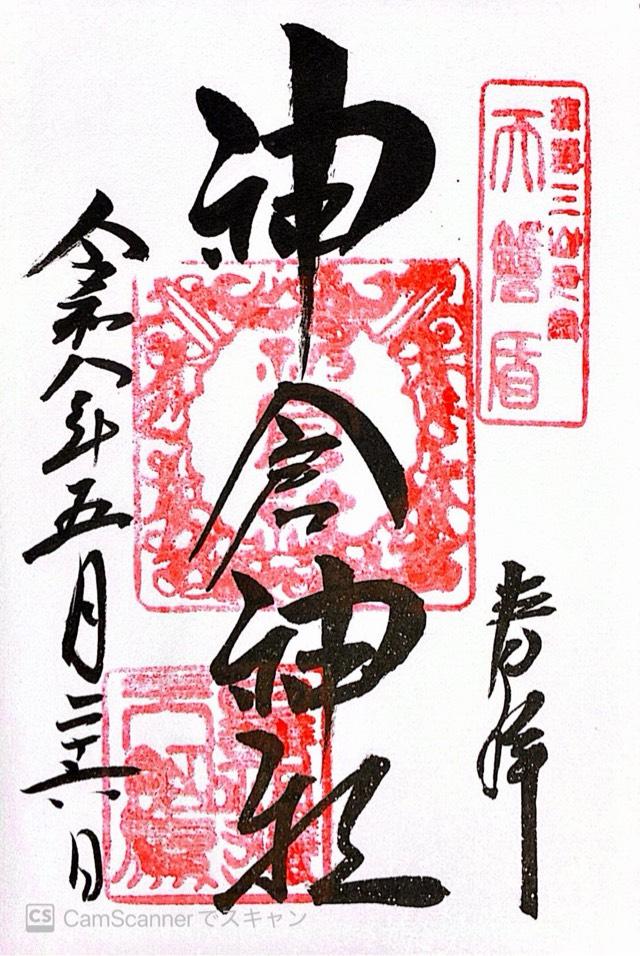 天磐盾
奉拝
神倉神社
令和八年五月二十六日
CS CamScannerでスキャン